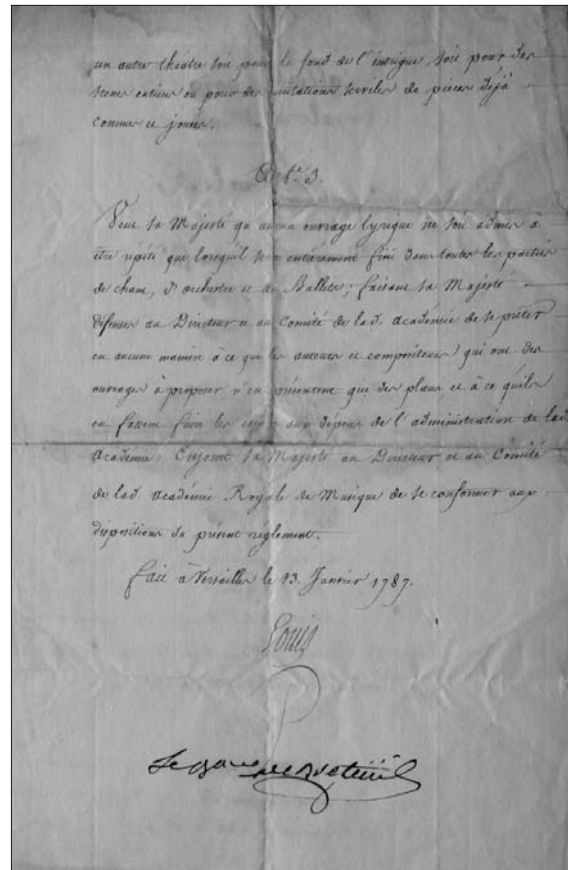 un autre théâtre soit pour le fond de l'intrigue, soit pour des
scenes entieres ou pour des imitations serviles de pieces déjà
connues et jouées.
Art.le 3.
Veut sa Majesté qu'aucun ouvrage lyrique ne soit admis à
être répété que lorsqu'il sera entièrement fini dans toutes les parties
de chant, d'orchestre et de Ballets; faisant sa Majesté
défenses au Directeur et au Comité de lad. académie de se prêter
en aucune maniere à ce que les auteurs et compositeurs qui ont des
ouvrages à proposer n'en présentent que des plans, et à ce qu'ils
en fassent faire les essais aux dépens de l'administration de lad.
Académie. Enjoint sa Majesté au Directeur et au Comité
de lad. académie Royale de Musique de se conformer aux
dispositions du présent reglement.
fait à Versailles le 13. Janvier 1787.
Louis
Le Baron de Breteuil